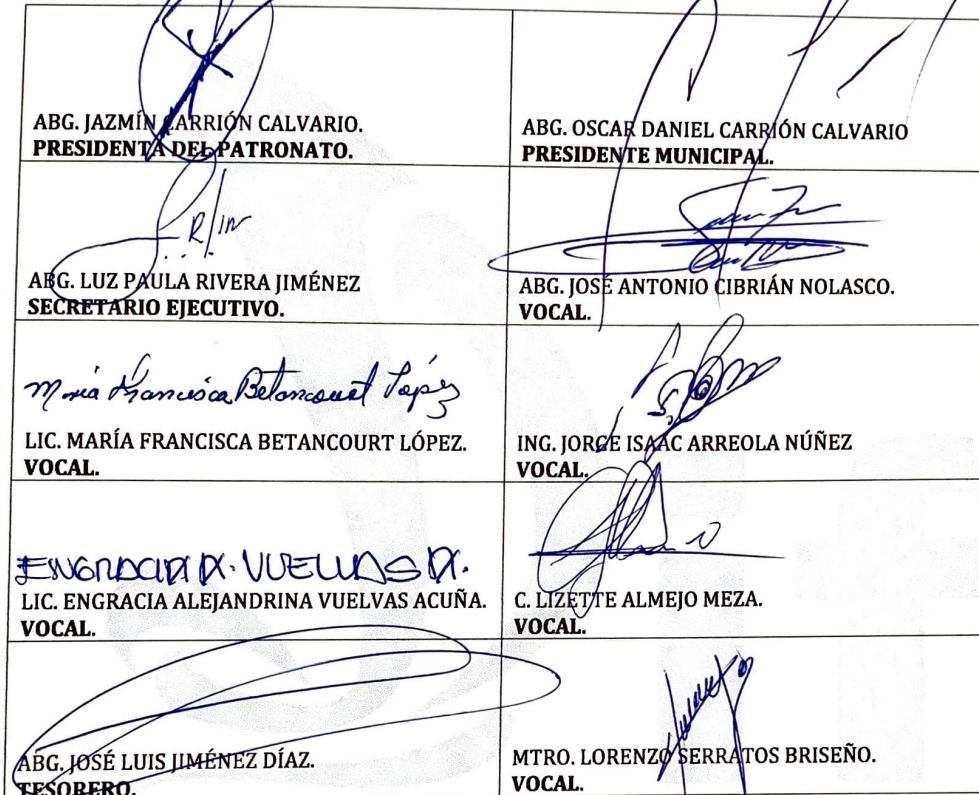 ABG. JAZMÍN CARRIÓN CALVARIO.
PRESIDENTA DEL PATRONATO.
ABG. OSCAR DANIEL CARRIÓN CALVARIO
PRESIDENTE MUNICIPAL.
ABG. LUZ PAULA RIVERA JIMÉNEZ
SECRETARIO EJECUTIVO.
ABG. JOSÉ ANTONIO CIBRIÁN NOLASCO.
VOCAL.
María Francisca Betancourt López
LIC. MARÍA FRANCISCA BETANCOURT LÓPEZ.
VOCAL.
ING. JORGE ISAAC ARREOLA NÚÑEZ
VOCAL.
ENGRACIA A. VUELVAS A.
LIC. ENGRACIA ALEJANDRINA VUELVAS ACUÑA.
VOCAL.
C. LIZETTE ALMEJO MEZA.
VOCAL.
ABG. JOSÉ LUIS JIMÉNEZ DÍAZ.
TESORERO.
MTRO. LORENZO SERRATOS BRISEÑO.
VOCAL.